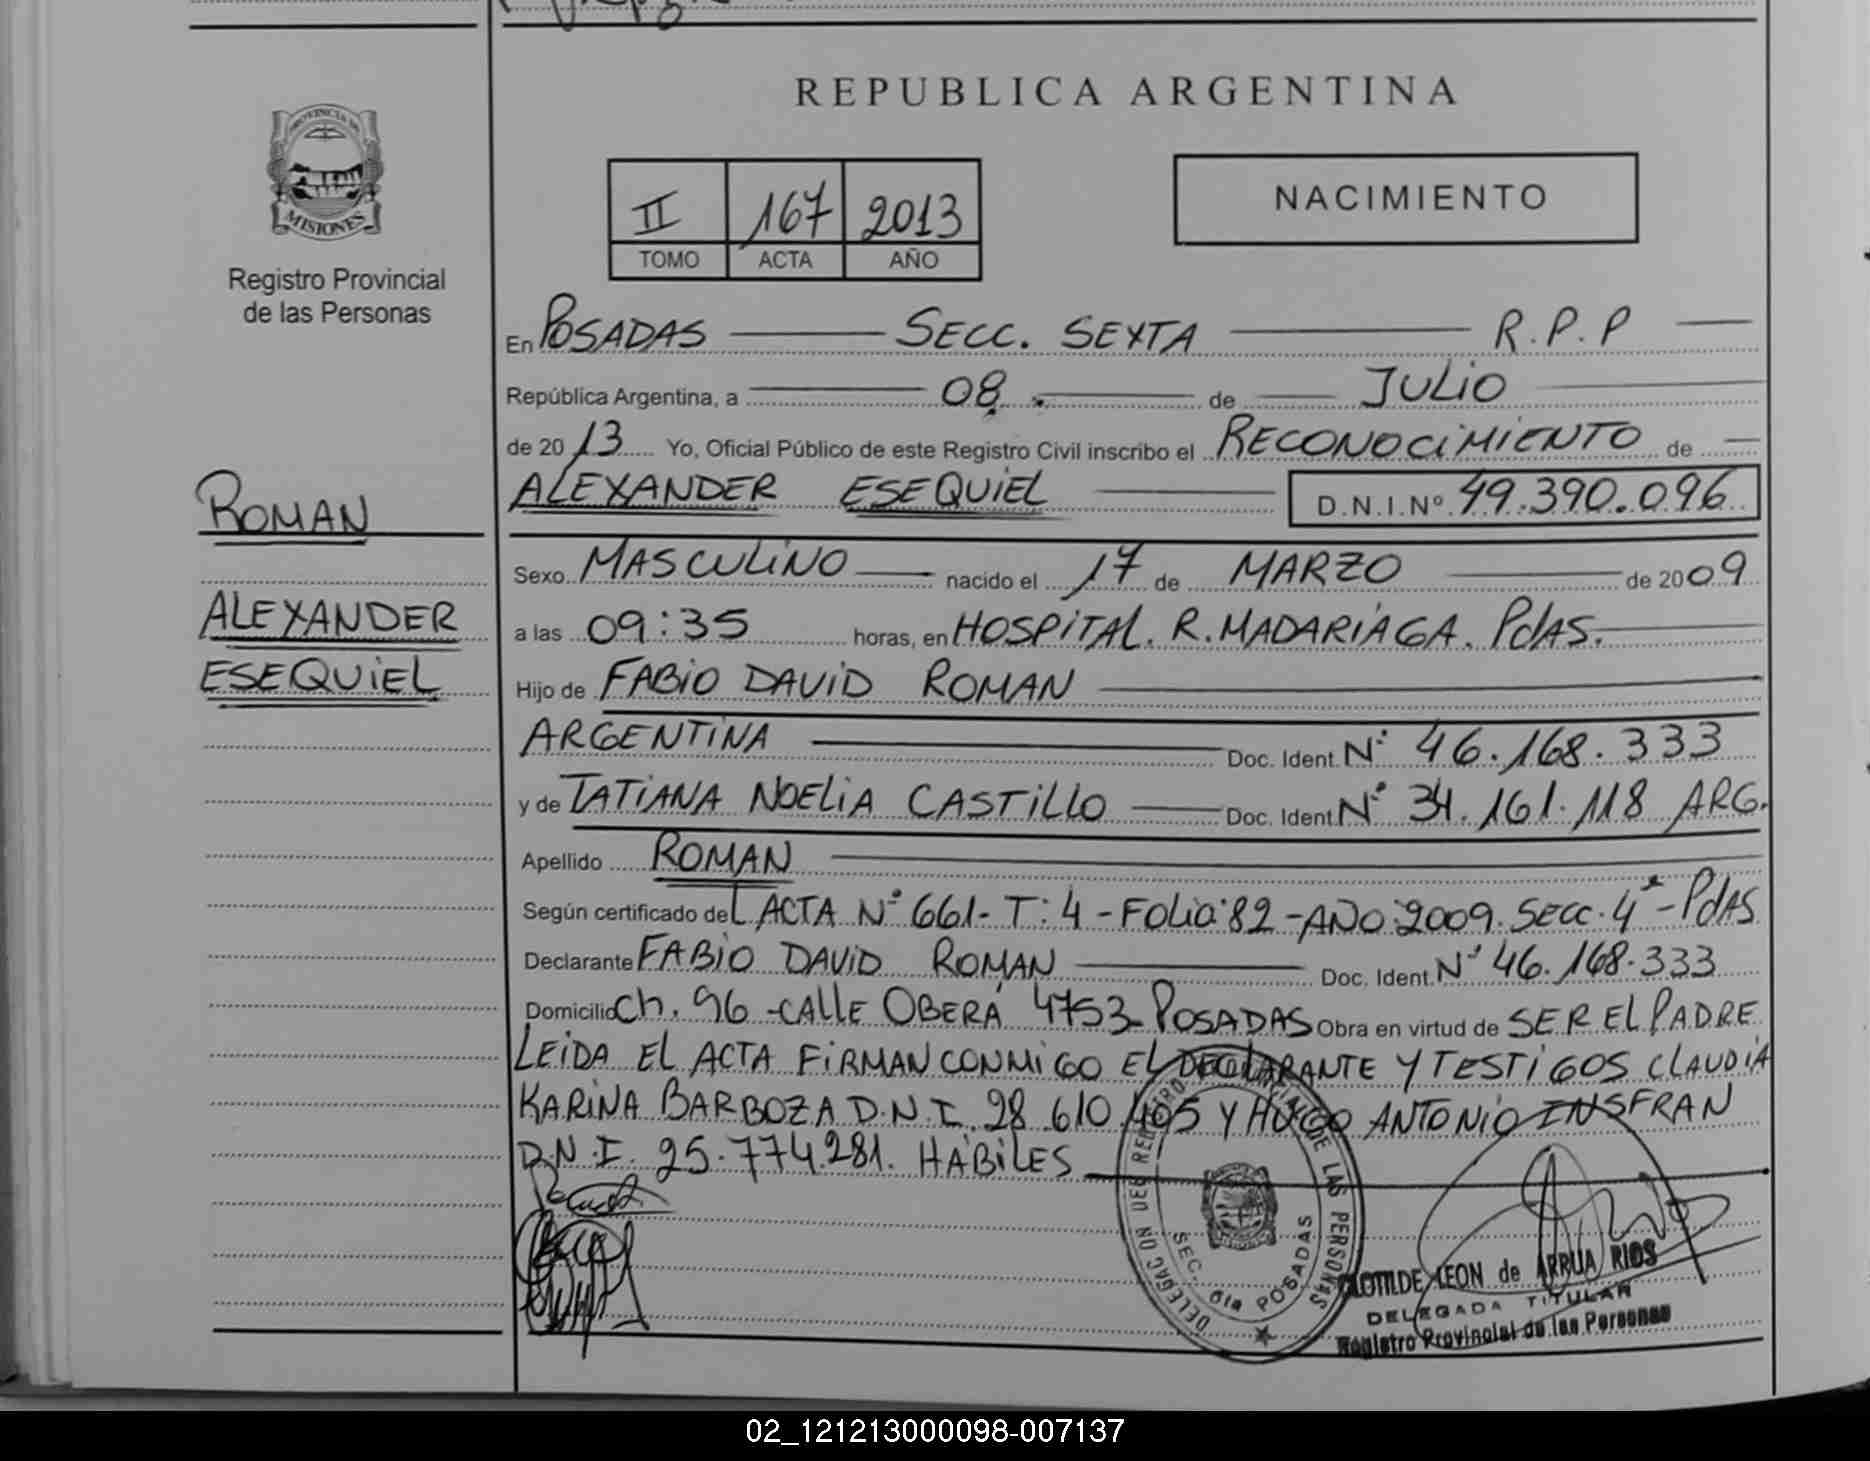 REPUBLICA ARGENTINA
PROVINCIA DE
MISIONES
Registro Provincial
de las Personas
II 167 2013
TOMO ACTA AÑO
NACIMIENTO
En POSADAS SECC. SEXTA R.P.P
República Argentina, a 08 de JULIO
de 2013 Yo, Oficial Público de este Registro Civil inscribo el RECONOCIMIENTO de
ALEXANDER ESEQUIEL D.N.I.Nº 49.390.096
ROMAN
ALEXANDER
ESEQUIEL
Sexo MASCULINO nacido el 17 de MARZO de 2009
a las 09:35 horas, en HOSPITAL. R. MADARIAGA. PdAS.
Hijo de FABIO DAVID ROMAN
ARGENTINA Doc. Ident. Nº 46.168.333
y de TATIANA NOELIA CASTILLO Doc. Ident. Nº 34.161.118 ARG.
Apellido ROMAN
Según certificado de L ACTA Nº 661- T: 4 - FOLIO: 82 - AÑO: 2009. SECC. 4ª - PdAS
Declarante FABIO DAVID ROMAN Doc. Ident. Nº 46.168.333
Domicilio Ch. 96 - CALLE OBERÁ 4753 - POSADAS Obra en virtud de SER EL PADRE
LEIDA EL ACTA FIRMAN CONMIGO EL DECLARANTE Y TESTIGOS CLAUDIA
KARINA BARBOZA D.N.I. 28.610.405 Y HUGO ANTONIO INSFRAN
D.N.I. 25.774.281. HABILES
DELEGACION DEL REGISTRO PROVINCIAL DE LAS PERSONAS
SEC. 6ta POSADAS
CLOTILDE LEON de ARRUA RIOS
DELEGADA TITULAR
Registro Provincial de las Personas
02_121213000098-007137